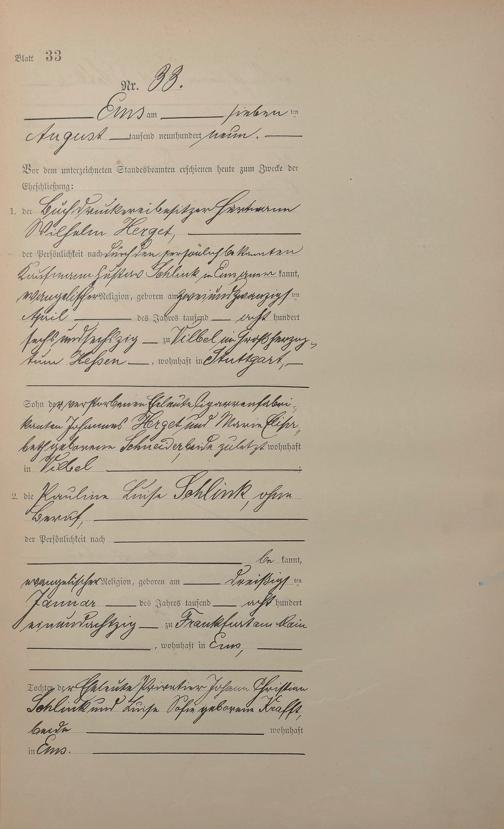 Blatt 33
Nr. 33.
Ems am sieben ten
August tausend neunhundert neun.
Vor dem unterzeichneten Standesbeamten erschienen heute zum Zwecke der
Eheschließung:
1. der Buchdruckereibesitzer Hermann
Wilhelm Herget,
der Persönlichkeit nach durch den persönlich bekannten
Kaufmann Gustav Schlink in Ems anerkannt,
evangelischer Religion, geboren am zweiundzwanzigsten
April des Jahres tausend acht hundert
sechsundsechszig zu Vilbel in Großherzog-
tum Hessen, wohnhaft in Stuttgart,
Sohn der verstorbenen Eheleute Cigarrenfabri-
kanten Johannes Herget und Marie Elisa-
beth geborene Schneider, beide zuletzt wohnhaft
in Vilbel
2. die Pauline Luise Schlink, ohne
Beruf,
der Persönlichkeit nach
be kannt,
evangelischer Religion, geboren am dreißigsten
Januar des Jahres tausend acht hundert
einundachtzig zu Frankfurt am Main
, wohnhaft in Ems,
Tochter der Eheleute Privatier Johann Christian
Schlink und Luise Sofie geborene Krafft,
beide wohnhaft
in Ems.